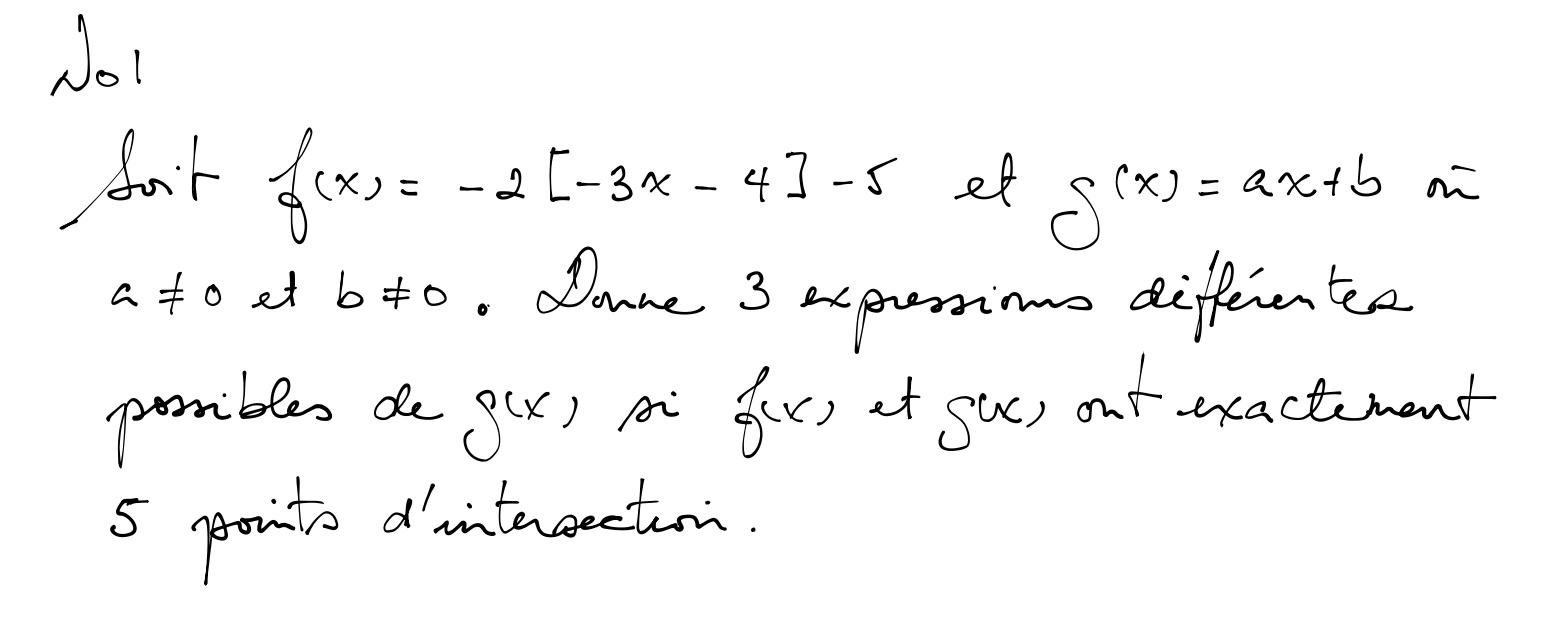 No 1
Soit f(x) = -2 [-3x - 4] -5 et g(x) = ax+b où
a ≠ 0 et b ≠ 0. Donne 3 expressions différentes
possibles de g(x) si f(x) et g(x) ont exactement
5 points d'intersection.